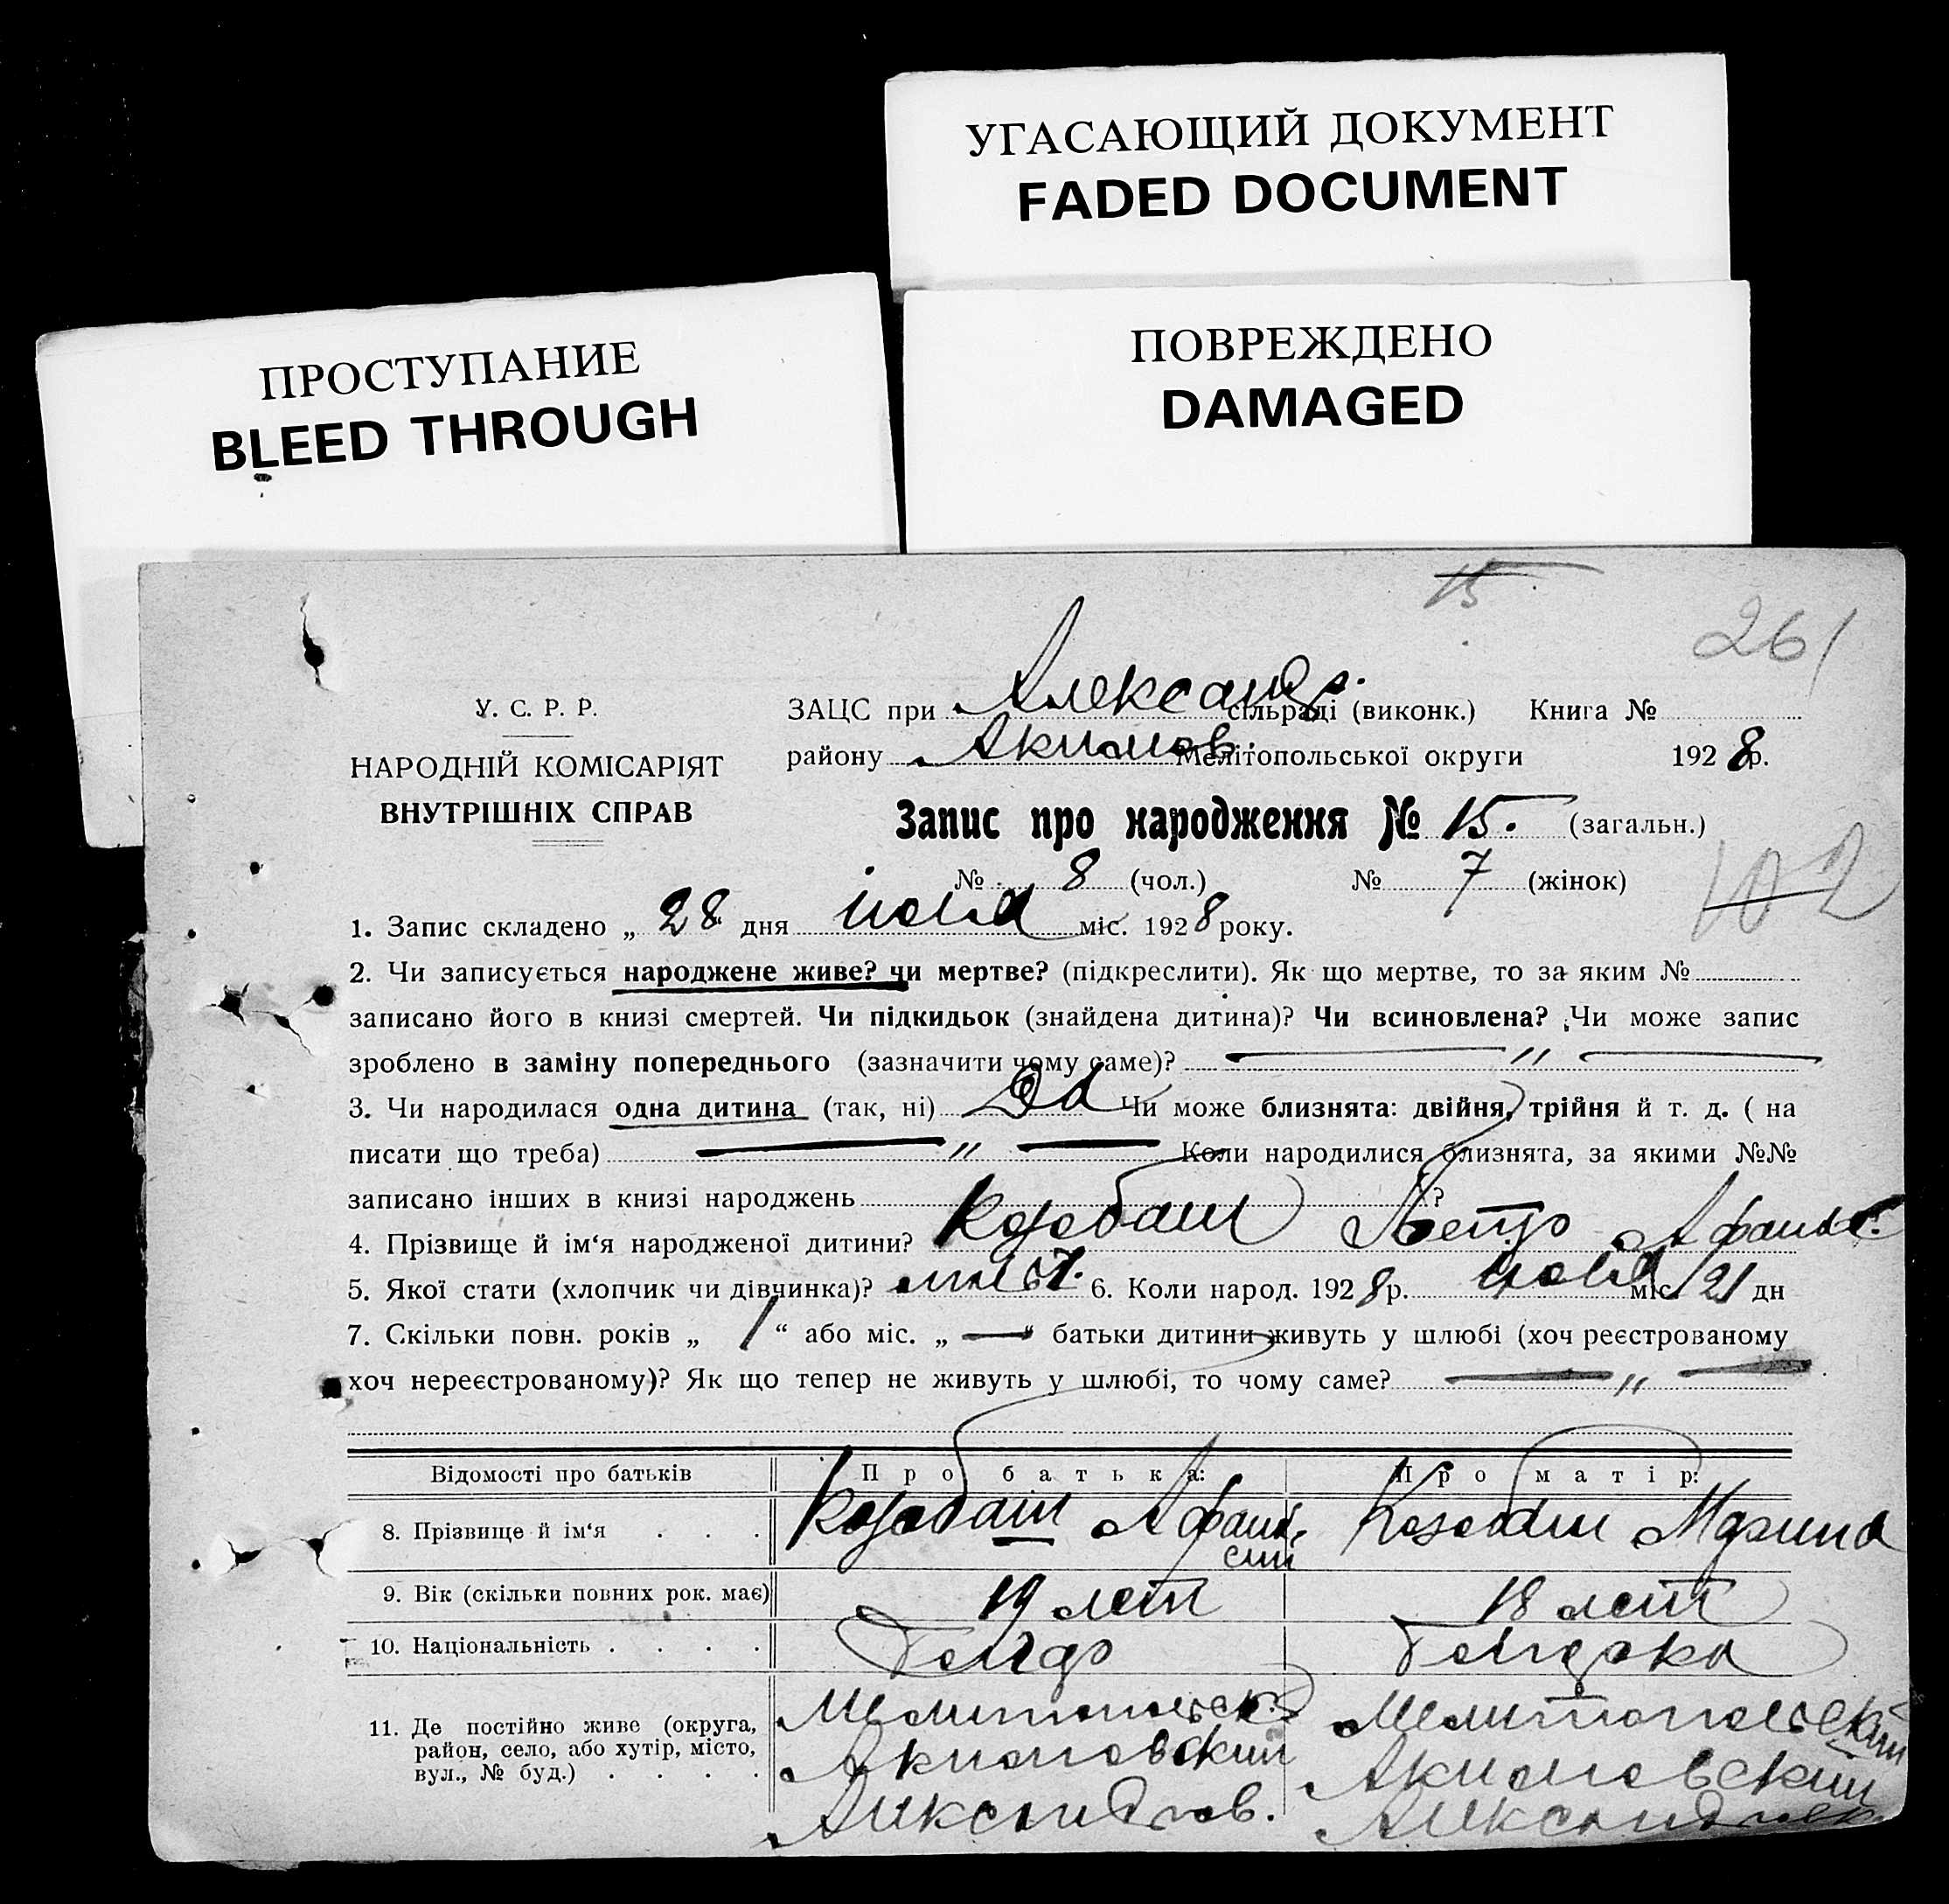 УГАСАЮЩИЙ ДОКУМЕНТ
FADED DOCUMENT
ПРОСТУПАНИЕ
BLEED THROUGH
ПОВРЕЖДЕНО
DAMAGED
15
261
У. С. Р. Р.
НАРОДНІЙ КОМІСАРІЯТ
ВНУТРІШНІХ СПРАВ
ЗАЦС при Александр. сільраді (виконк.) Книга №
району Акимов. Мелітопольської округи 1928 р.
Запис про народження № 15. (загальн.)
102
№ 8 (чол.) № 7 (жінок)
1. Запис складено „ 28 “ дня міс. 1928 року.
2. Чи записується народжене живе? чи мертве? (підкреслити). Як що мертве, то за яким №
записано його в книзі смертей. Чи підкидьок (знайдена дитина)? Чи всиновлена? Чи може запис
зроблено в заміну попереднього (зазначити чому саме)? — „ —
3. Чи народилася одна дитина (так, ні) Чи може близнята: двійня, трійня й т. д. ( на
писати що треба) — „ — Коли народилися близнята, за якими №№
записано інших в книзі народжень ?
4. Прізвище й ім‘я народженої дитини? Козобаш Петр Афанас.
5. Якої стати (хлопчик чи дівчинка)? 6. Коли народ. 1928 р. міс. 21 дн
7. Скільки повн. років „ 1 “ або міс. „ — “ батьки дитини живуть у шлюбі (хоч реєстрованому
хоч нереєстрованому)? Як що тепер не живуть у шлюбі, то чому саме? — „ —
Відомості про батьків Про батька: Про матір:
8. Прізвище й ім‘я . . . Козобаш Афанасий Козобаш Марина
9. Вік (скільки повних рок. має) 19 лет 18 лет
10. Національність . . . .
11. Де постійно живе (округа, район, село, або хутір, місто, вул., № буд.) . . . .
Мелитопольск. Мелитопольский
Акимовский Акимовский
Александров.